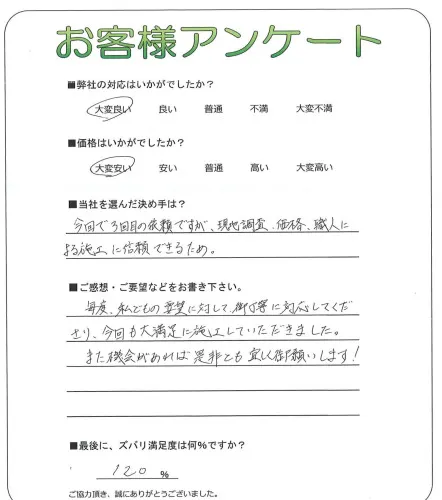 お客様アンケート
■弊社の対応はいかがでしたか？
大変良い 良い 普通 不満 大変不満
■価格はいかがでしたか？
大変安い 安い 普通 高い 大変高い
■当社を選んだ決め手は？
今回で3回目の依頼ですが、現地調査、価格、職人に
よる施工に信頼できるため。
■ご感想・ご要望などをお書き下さい。
毎度、私どもの要望に対して、御丁寧に対応してくだ
さり、今回も大満足に施工していただきました。
また機会があれば是非とも宜しく御願いします！
■最後に、ズバリ満足度は何%ですか？
120 %
ご協力頂き、誠にありがとうございました。